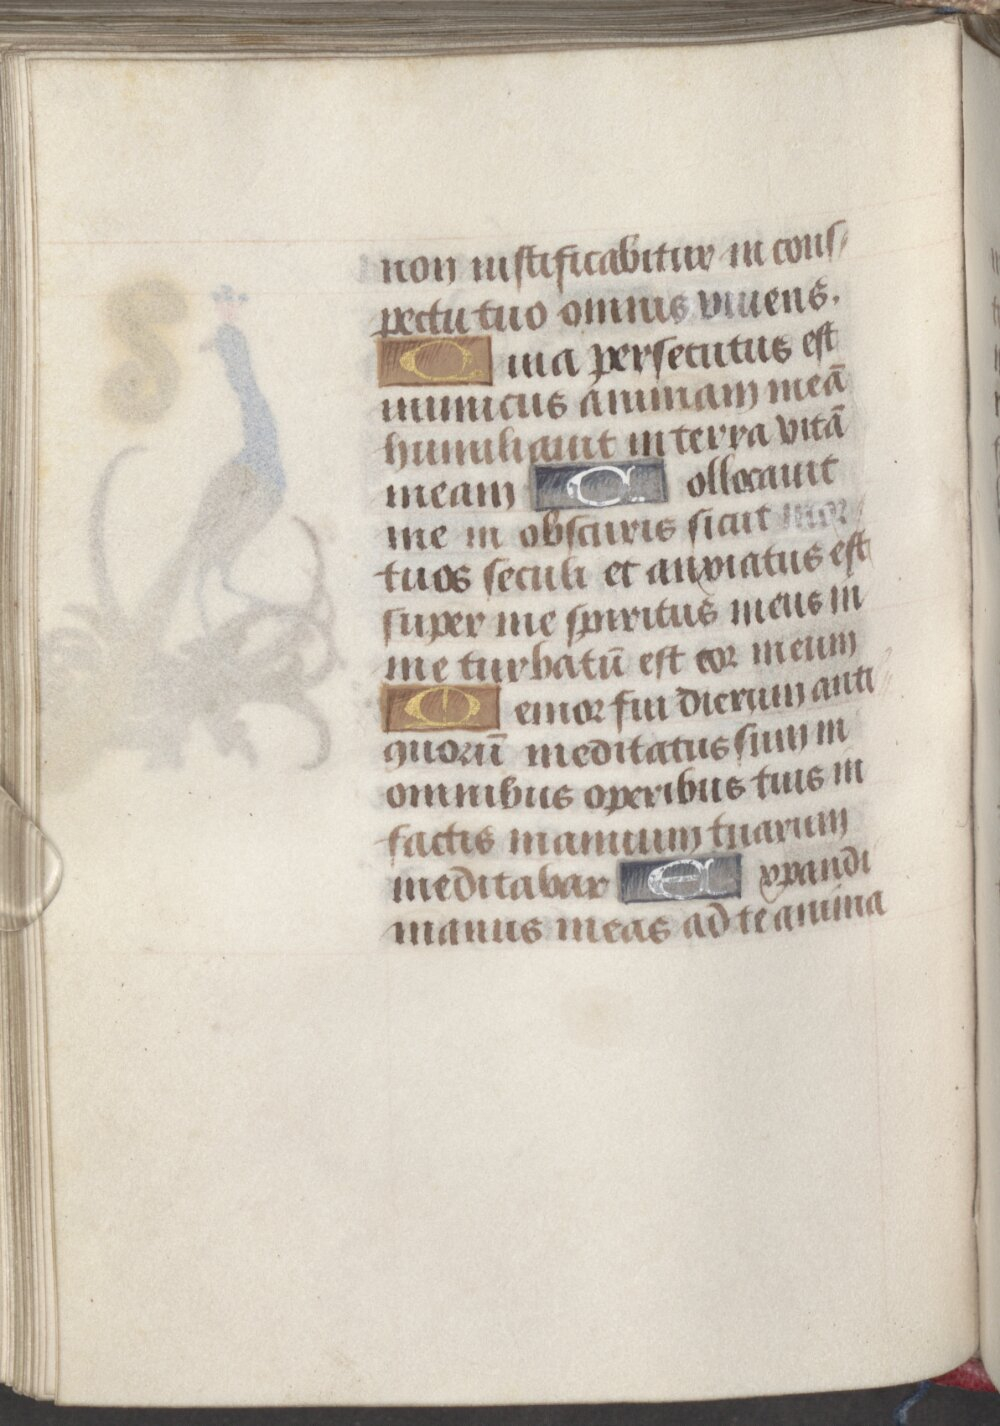 non iustificabitur in cons/
pectu tuo omnis vivens.
Quia persecutus est
inimicus animam meā
humiliavit in terra vitā
meam Collocavit
me in obscuris sicut mor
tuos seculi et anxiatus est
super me spiritus meus in
me turbatū est cor meum
Memor fui dierum anti
quorū meditatus sum in
omnibus operibus tuis in
factis manuum tuarum
meditabar Expandi
manus meas ad te anima